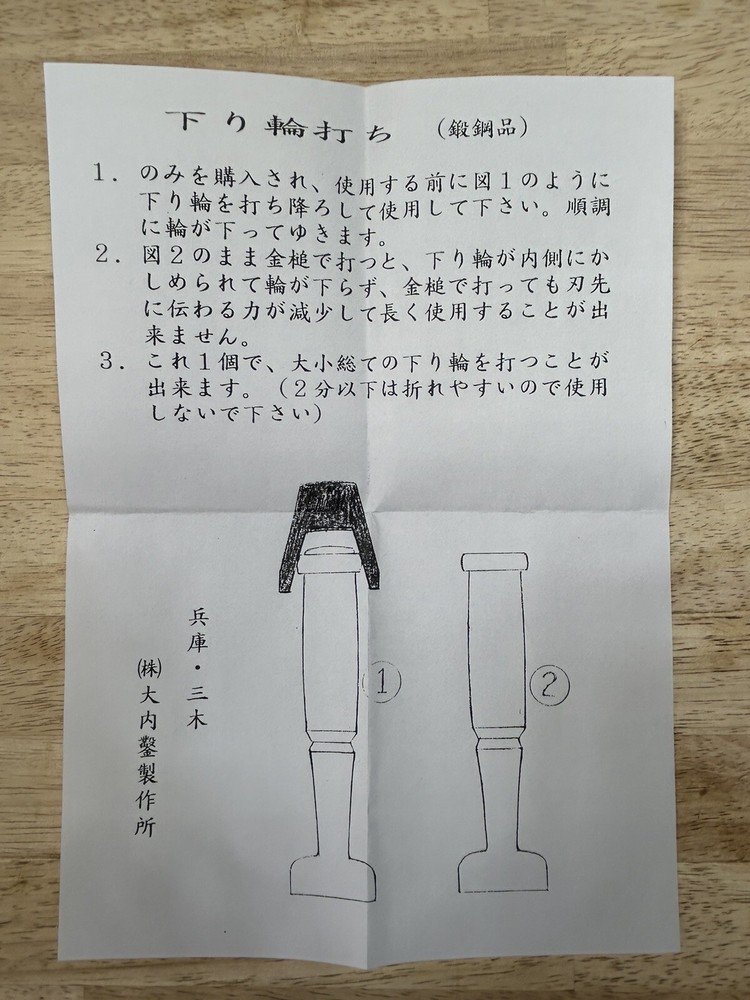 下り輪打ち （鍛鋼品）
1．のみを購入され、使用する前に図1のように
下り輪を打ち降ろして使用して下さい。順調
に輪が下ってゆきます。
2．図2のまま金槌で打つと、下り輪が内側にか
しめられて輪が下らず、金槌で打っても刃先
に伝わる力が減少して長く使用することが出
来ません。
3．これ1個で、大小総ての下り輪を打つことが
出来ます。（2分以下は折れやすいので使用
しないで下さい）
①
②
兵庫・三木
㈱大内鑿製作所